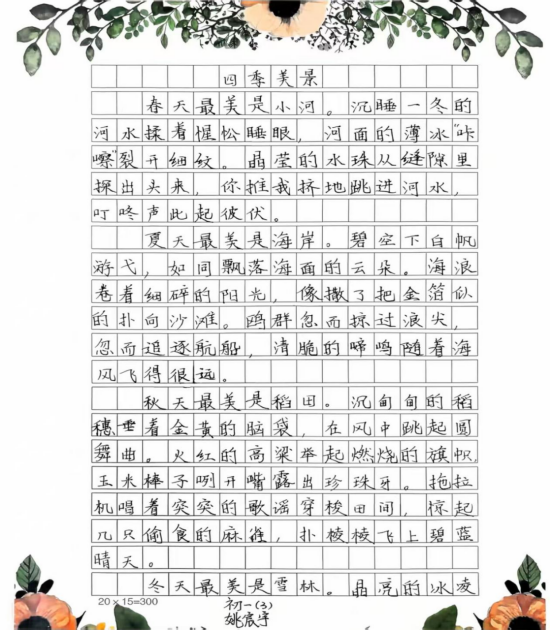 四季美景
春天最美是小河。沉睡一冬的
河水揉着惺忪睡眼,河面的薄冰“咔
嚓”裂开细纹。晶莹的水珠从缝隙里
探出头来,你推我挤地跳进河水,
叮咚声此起彼伏。
夏天最美是海岸。碧空下白帆
游弋,如同飘落海面的云朵。海浪
卷着细碎的阳光,像撒了把金箔似
的扑向沙滩。鸥群忽而掠过浪尖,
忽而追逐航船,清脆的啼鸣随着海
风飞得很远。
秋天最美是稻田。沉甸甸的稻
穗垂着金黄的脑袋,在风中跳起圆
舞曲。火红的高粱举起燃烧的旗帜,
玉米棒子咧开嘴露出珍珠牙。拖拉
机唱着突突的歌谣穿梭田间,惊起
几只偷食的麻雀,扑棱棱飞上碧蓝
晴天。
冬天最美是雪林。晶亮的冰凌
20×15=300
初一(3)
姚宸宇